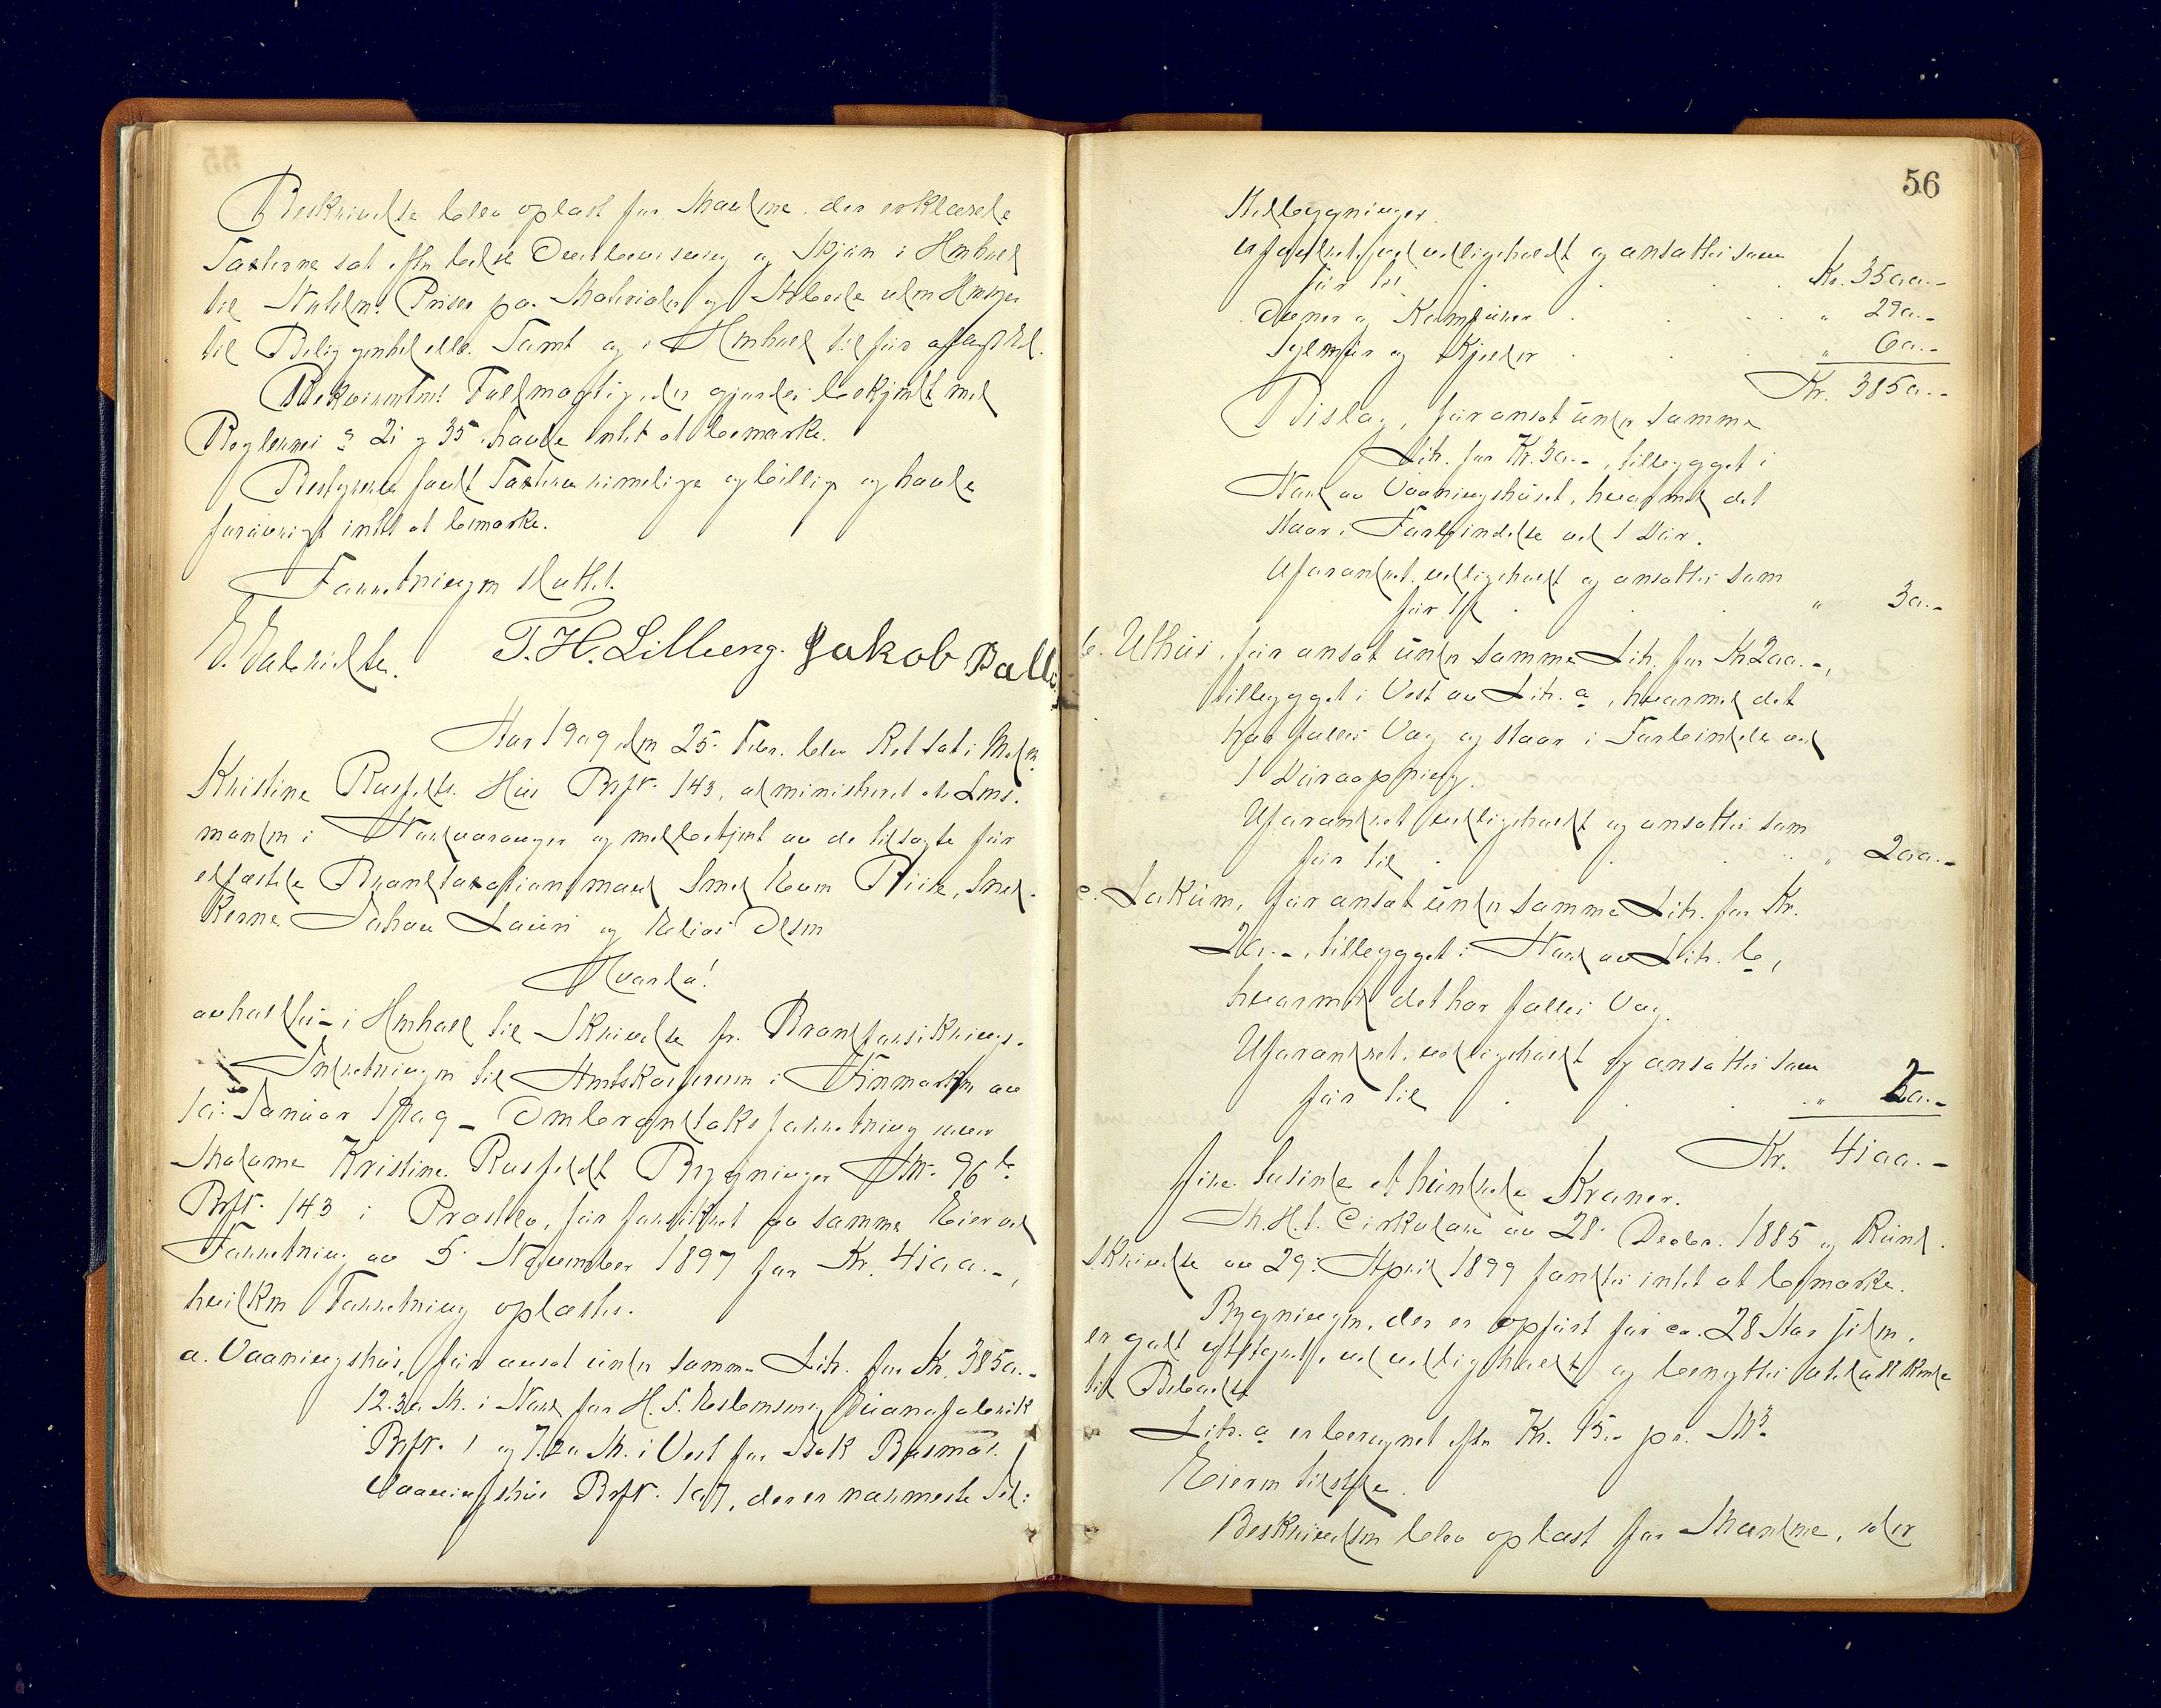 Beskrivelse blev oplæst for Mændene, der erklærede
Taxterne sat efter bedste Overbevisning og Skjøn i Henhold
til Nutidens Priser paa Materialer og Arbeide uden Hensyn
til Beliggenhed eller Tomt og i Henhold til før aflagt Ed.
Rekvirentens Fuldmægtig, der gjordes bekjendt med
Reglerne i § 21 og 35 havde intet at bemærke.
Bestyreren fandt Taxterne rimelige og billige og havde
forøvrigt intet at bemærke.
Forretningen sluttet.
T. H. Lilleeng. Jakob Balle
Aar 1909 den 25. Febr. blev Ret sat i Madm
Kristine Rusfeldts Hus Brfr. 143, administreret af Lens-
manden i Nordvaranger og medbetjent av de tilsagte før
edfæstede Brandtaxationsmænd Smed Even Piire, Sned-
kerne Johan Lauri og Elias Olsen
Hvorda!
avholdtes i Henhold til Skrivelse fr. Brandforsikrings-
Indretningen til Amtskassereren i Finmarken av
10. Januar 1909 – Ombrandtaksforretning over
Madame Kristine Rusfeldt Bygninger No. 96 b
Brfr. 143 i Præstbo, før forsikret av samme Eier ved
Forretning av 5. November 1897 for Kr. 4100.-,
hvilken Forretning oplæstes.
a. Vaaningshus, før ansat under samme Litr. for Kr. 3850.-
12.30 M. i Nord for H. F. Esbensens Guanofabrik
Brfr. 1 og 7.20 M. i Vest for Isak Rasmus.
Vaaningshus Brfr. 107, der er nærmeste Sid-
56
stebygninger.
Uforandret, vel vedligeholdt og ansattes som
før til . . . Kr. 3500.-
Ovner og Komfurer . . . " 290.-
Sylmur og Kjelder . . " 60.-
Kr. 3850.-
Bislag, før ansat under samme
Litr. for Kr. 30.-, tilbygget i
Nord av Vaaningshuset, hvormed det
staar i Forbindelse ved 1 Dør.
Uforandret vedligeholdt og ansattes som
før til . . . " 30.-
b. Uthus, før ansat under samme Litr. for Kr 200.-,
tilbygget i Vest av Litr. a, hvormed det
har fælles Væg og staar i Forbindelse ved
1 Døraapning.
Uforandret vedligeholdt og ansattes som
før til . . . " 200.-
c. Lokum, før ansat under samme Litr. for Kr.
20.-, tilbygget i Nord av Litr. b,
hvormed det har fælles Væg.
Uforandret, vedligeholdt og ansattes som
før til . . . " 20.-
Kr. 4100.-
fire tusinde et hundrede Kroner.
M. H. t. Cirkulære av 28. Decbr. 1885 og Rund-
skrivelse av 29. April 1899 fandtes intet at bemærke.
Bygningen, der er opført for ca. 28 Aar siden,
er godt vedligeholdt og benyttes udelukkende
til Beboelse
Litr. a er beregnet efter Kr. 15.- pr. M³
Eieren tilstede.
Beskrivelsen blev oplæst for Mændene, der